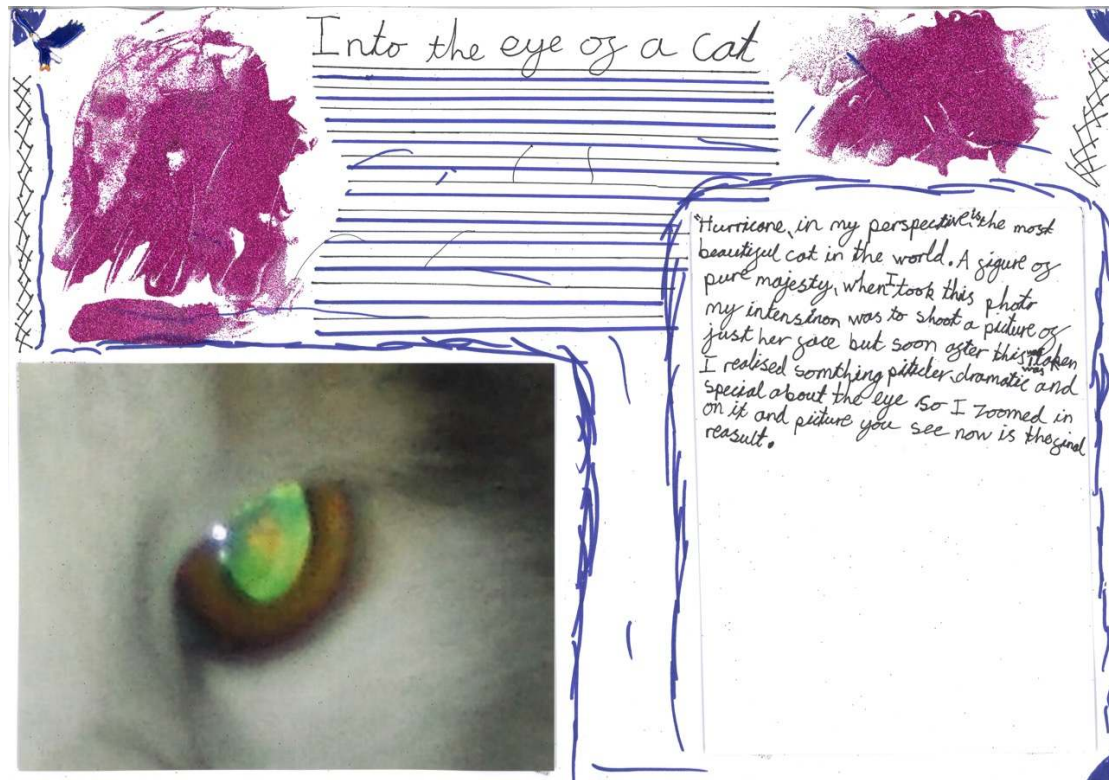 Into the eye of a cat
"Hurricane, in my perspective is the most
beautiful cat in the world. A figure of
pure majesty, when I took this photo
my intensinon was to shoot a picture of
just her face but soon after this was taken
I realised somthing dramatic and
special about the eye so I zoomed in
on it and picture you see now is the final
reasult.